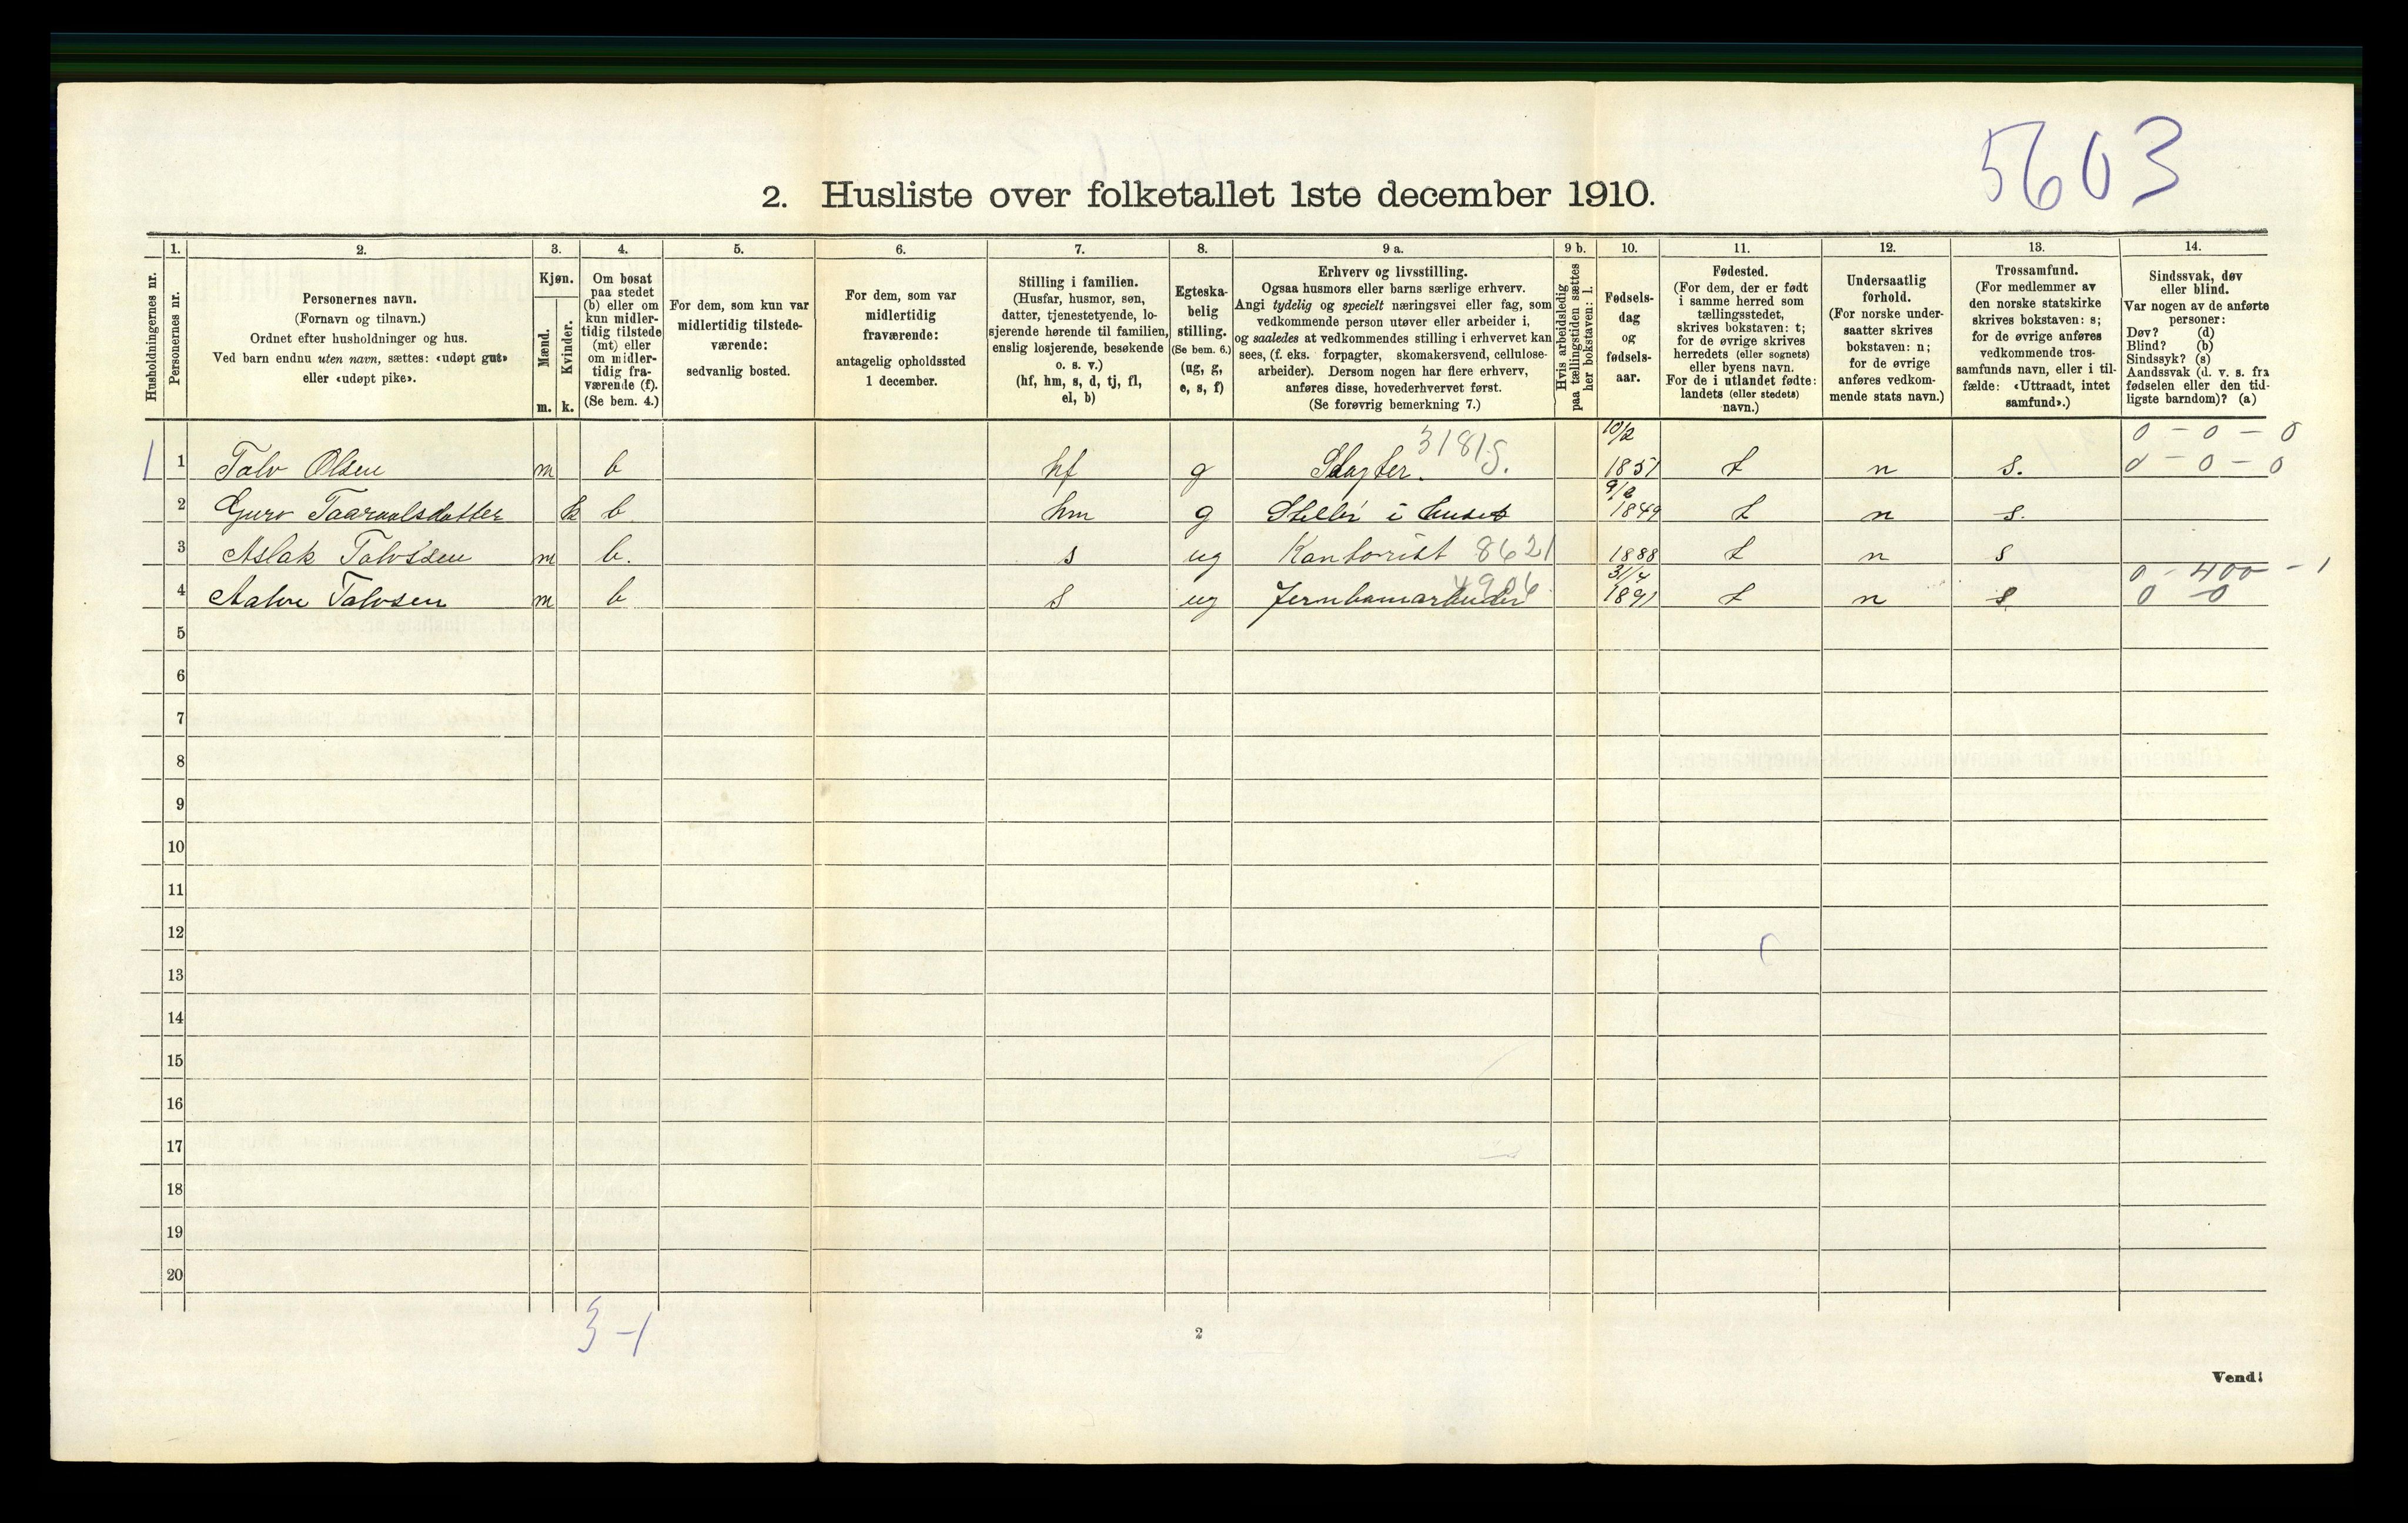 5603
2. Husliste over folketallet 1ste december 1910.
Husholdningernes nr.
1.
Personernes nr.
2.
Personernes navn.
(Fornavn og tilnavn.)
Ordnet efter husholdninger og hus.
Ved barn endnu uten navn, sættes: «udøpt gut»
eller «udøpt pike».
3.
Kjøn.
Mænd.
Kvinder.
m. k.
4.
Om bosat
paa stedet
(b) eller om
kun midler-
tidig tilstede
(mt) eller
om midler-
tidig fra-
værende (f).
(Se bem. 4.)
5.
For dem, som kun var
midlertidig tilstede-
værende:
sedvanlig bosted.
6.
For dem, som var
midlertidig
fraværende:
antagelig opholdssted
1 december.
7.
Stilling i familien.
(Husfar, husmor, søn,
datter, tjenestetyende, lo-
sjerende hørende til familien,
enslig losjerende, besøkende
o. s. v.)
(hf, hm, s, d, tj, fl,
el, b)
8.
Egteska-
belig
stilling.
(Se bem. 6.)
(ug, g,
e, s, f)
9 a.
Erhverv og livsstilling.
Ogsaa husmors eller barns særlige erhverv.
Angi tydelig og specielt næringsvei eller fag, som
vedkommende person utøver eller arbeider i,
og saaledes at vedkommendes stilling i erhvervet kan
sees, (f. eks. forpagter, skomakersvend, cellulose-
arbeider). Dersom nogen har flere erhverv,
anføres disse, hovederhvervet først.
(Se forøvrig bemerkning 7.)
9 b.
Hvis arbeidsledig
paa tællingstiden sættes
her bokstaven: l.
10.
Fødsels-
dag
og
fødsels-
aar.
11.
Fødested.
(For dem, der er født
i samme herred som
tællingsstedet,
skrives bokstaven: t;
for de øvrige skrives
herredets (eller sognets)
eller byens navn.
For de i utlandet fødte:
landets (eller stedets)
navn.)
12.
Undersaatlig
forhold.
(For norske under-
saatter skrives
bokstaven: n;
for de øvrige
anføres vedkom-
mende stats navn.)
13.
Trossamfund.
(For medlemmer av
den norske statskirke
skrives bokstaven: s;
for de øvrige anføres
vedkommende tros-
samfunds navn, eller i til-
fælde: «Uttraadt, intet
samfund».)
14.
Sindssvak, døv
eller blind.
Var nogen av de anførte
personer:
Døv? (d)
Blind? (b)
Sindssyk? (s)
Aandssvak (d. v. s. fra
fødselen eller den tid-
ligste barndom)? (a)
3181S. 10/2 0 - 0 - 0
1 1 Talv Olsen m b hf g Slagter. 1851 t n s. 0 - 0 - 0
9/2
2 Guro Taaraalsdatter k b. hm g Steller i huset 1849 t n s.
3 Aslak Talvsen m b. s ug Kontorist 8621 1888 t n s
4906 31/7 0 - 400 - 1
4 Aalov Talvsen m b s ug Jernbanearbeider 1891 t n s 0 0
5
6
7
8
9
10
11
12
13
14
15
16
17
18
19
20
3 - 1
2
Vend!